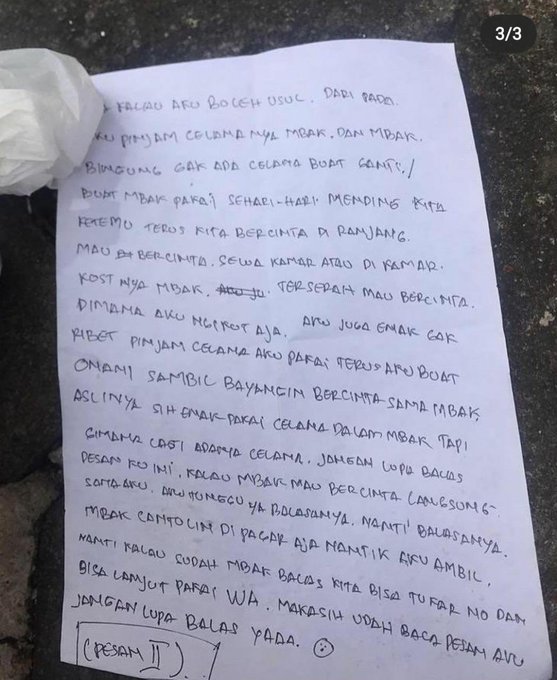 3/3
KALAU AKU BOLEH USUL. DARI PADA.
AKU PINJAM CELANA NYA MBAK. DAN MBAK.
BINGUNG GAK ADA CELANA BUAT GANTI./
BUAT MBAK PAKAI SEHARI-HARI. MENDING KITA
KETEMU TERUS KITA BERCINTA DI RANJANG.
MAU BERCINTA. SEWA KAMAR ATAU DI KAMAR.
KOST NYA MBAK. TERSERAH MAU BERCINTA.
DIMANA AKU NGIKOT AJA. AKU JUGA ENAK GAK
RIBET PINJAM CELANA AKU PAKAI TERUS AKU BUAT
ONANI SAMBIL BAYANGIN BERCINTA SAMA MBAK.
ASLINYA SIH ENAK PAKAI CELANA DALAM MBAK TAPI
GIMANA LAGI ADANYA CELANA. JANGAN LUPA BALAS
PESAN KU INI. KALAU MBAK MAU BERCINTA LANGSUNG-
SAMA AKU. AKU TUNGGU YA BALASANYA. NANTI BALASANYA.
MBAK CANTOLIN DI PAGAR AJA NANTIK AKU AMBIL.
NANTI KALAU SUDAH MBAK BALAS KITA BISA TUKAR NO DAN
BISA LANJUT PAKAI WA. MAKASIH UDAH BACA PESAN AKU
JANGAN LUPA BALAS YADA. ☺
(PESAN II)